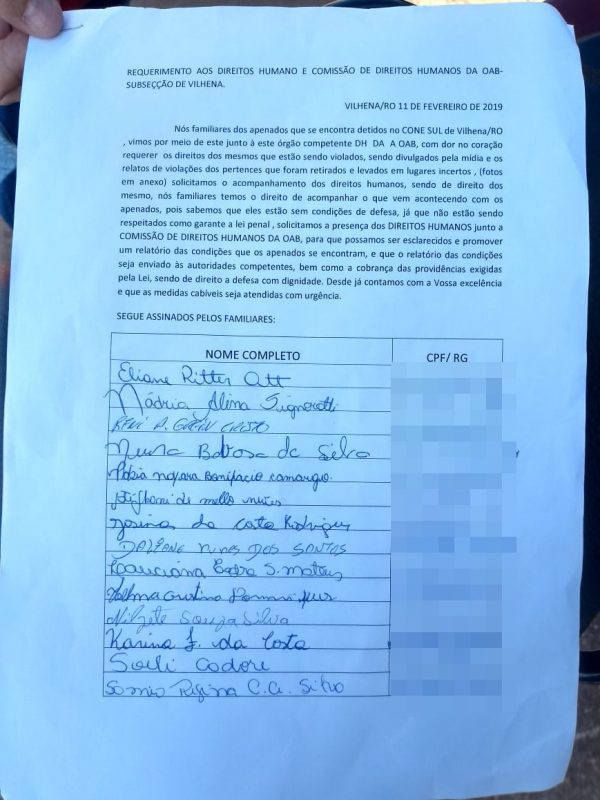 REQUERIMENTO AOS DIREITOS HUMANO E COMISSÃO DE DIREITOS HUMANOS DA OAB-
SUBSECÇÃO DE VILHENA.
VILHENA/RO 11 DE FEVEREIRO DE 2019
Nós familiares dos apenados que se encontra detidos no CONE SUL de Vilhena/RO
, vimos por meio de este junto à este órgão competente DH DA A OAB, com dor no coração
requerer os direitos dos mesmos que estão sendo violados, sendo divulgados pela mídia e os
relatos de violações dos pertences que foram retirados e levados em lugares incertos , (fotos
em anexo) solicitamos o acompanhamento dos direitos humanos, sendo de direito dos
mesmo, nós familiares temos o direito de acompanhar o que vem acontecendo com os
apenados, pois sabemos que eles estão sem condições de defesa, já que não estão sendo
respeitados como garante a lei penal , solicitamos a presença dos DIREITOS HUMANOS junto a
COMISSÃO DE DIREITOS HUMANOS DA OAB, para que possamos ser esclarecidos e promover
um relatório das condições que os apenados se encontram, e que o relatório das condições
seja enviado às autoridades competentes, bem como a cobrança das providências exigidas
pela Lei, sendo de direito a defesa com dignidade. Desde já contamos com a Vossa excelência
e que as medidas cabíveis seja atendidas com urgência.
SEGUE ASSINADOS PELOS FAMILIARES:
NOME COMPLETO CPF/ RG
Eliane Ritter Ott
Alina Signoretti
Neura Barbosa da Silva
nayara Bonifacio camargo
de mello nunes
Josina da Costa Rodrigues
DAIANE NUNES DOS SANTOS
S. mateus
Nilzete Souza Silva
Karina F. da Costa
Sueli Cadore
Sonia Regina C.A. Silva